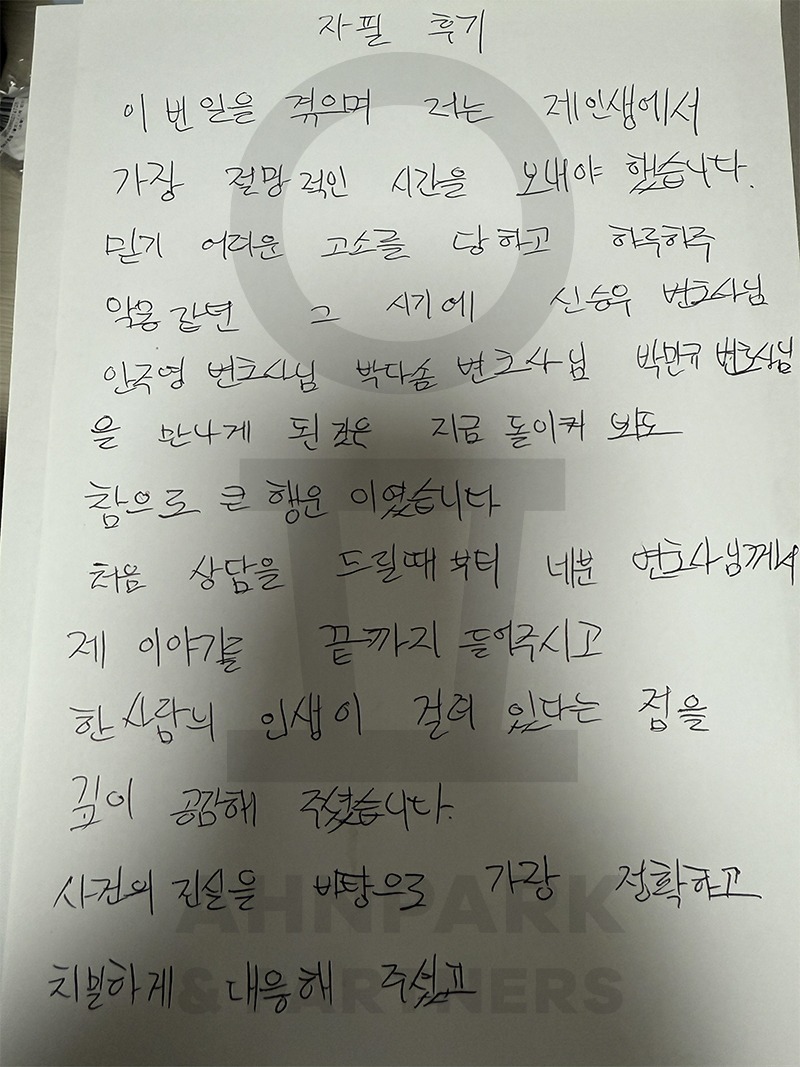 자필 후기
이번 일을 겪으며 저는 제 인생에서
가장 절망적인 시간을 보내야 했습니다.
믿기 어려운 고소를 당하고 하루하루
악몽 같던 그 시기에 신승우 변호사님
안국영 변호사님 박다솜 변호사님 박민규 변호사님
을 만나게 된 것은 지금 돌이켜 봐도
참으로 큰 행운 이였습니다
처음 상담을 드릴때 부터 네분 변호사님께서
제 이야기를 끝까지 들어주시고
한 사람의 인생이 걸려 있다는 점을
깊이 공감해 주셨습니다.
사건의 진실을 바탕으로 가장 정확하고
치밀하게 대응해 주셨고
AHNPARK
& PARTNERS